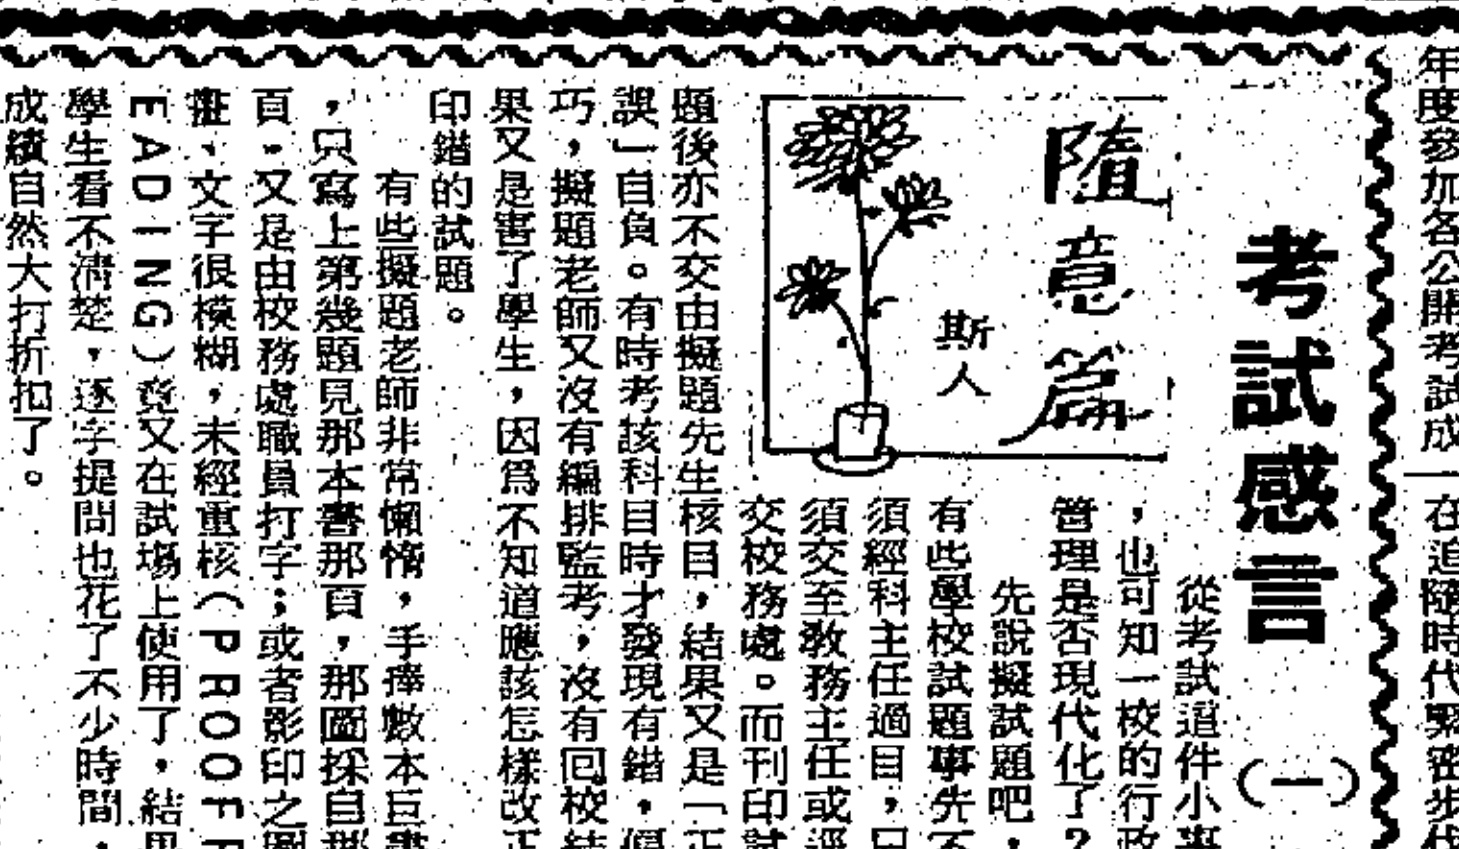 年度參加各公開考試成
在追隨時代緊密步伐
考試感言
(一)
隨意篇
斯人
從考試這件小事
，也可知一校的行政
管理是否現代化了？
先說擬試題吧，
有些學校試題事先不
須經科主任過目，只
須交至敎務主任或逕
交校務處。而刊印試
題後亦不交由擬題先生核目，結果又是「正
誤」自負。有時考該科目時才發現有錯，偶
巧，擬題老師又沒有編排監考，沒有回校結
果又是害了學生，因爲不知道應該怎樣改正
印錯的試題。
有些擬題老師非常懶惰，手捧數本巨書
，只寫上第幾題見那本書那頁，那圖採自那
頁。又是由校務處職員打字；或者影印之圖
文字很模糊，未經重核（PROOF R
EADING）竟又在試場上使用了，結果
學生看不清楚，逐字提問也花了不少時間，
成績自然大打折扣了。